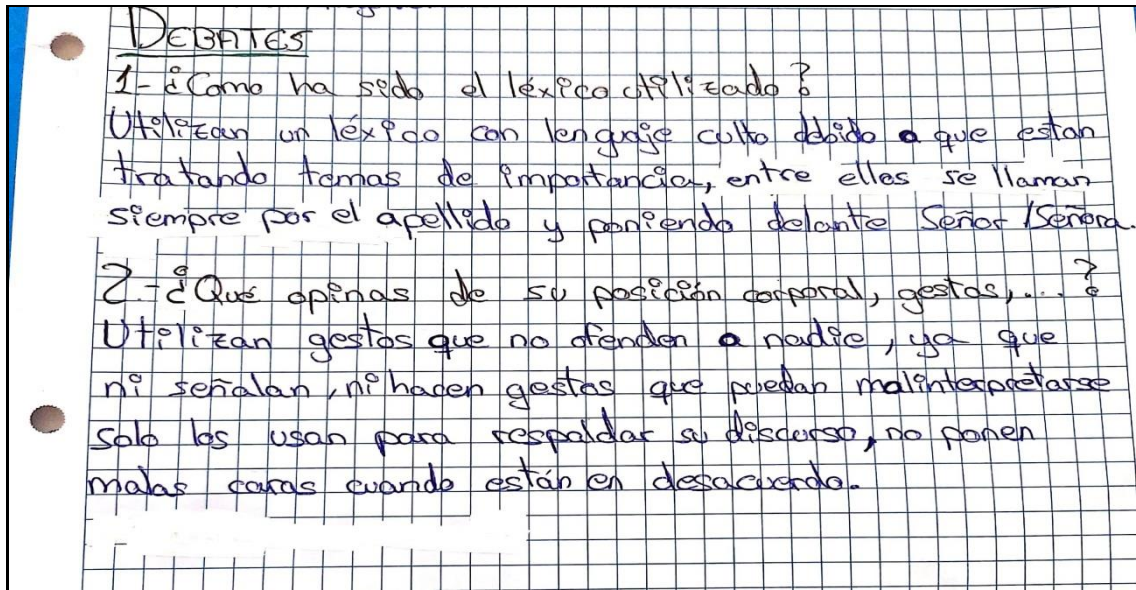 DEBATES
1- ¿Como ha sido el léxico utilizado?
Utilizan un léxico con lenguaje culto debido a que estan
tratando temas de importancia, entre ellos se llaman
siempre por el apellido y poniendo delante Señor/Señora.
2.- ¿Qué opinas de su posición corporal, gestos,...?
Utilizan gestos que no ofenden a nadie, ya que
ni señalan, ni hacen gestos que puedan malinterpretarse
solo los usan para respaldar su discurso, no ponen
malas caras cuando están en desacuerdo.